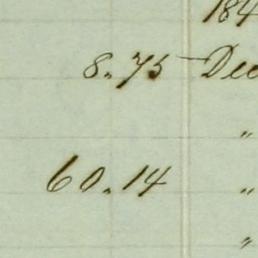 184
8.75 Dec
"
60.14 "
"